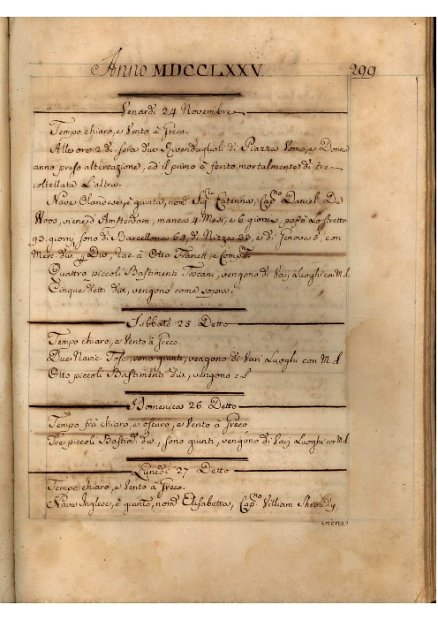 Anno MDCCLXXV. 299
Venerdi 24 Novembre
Tempo chiaro, e Vento à Greco.
Alle ore 2 di sera due Rivenduglioli di Piazza Uomo, e Done
anno preso altercazione, ed il primo à ferito mortalmente di tre
coltellate L'altro.
Nave Olandese, è giunta, nom.ᵃ Catarina, Cap.º Daniel De
Woos, viene d'Amsterdam, manca 4 Mesi, e 6 giorni, passò Lo stretto
93 giorni sono di Barcellona 64, di Nizza 32, e di Genova 8, con
Merc. die
Quattro piccoli Bastimenti Toscani, vengono da Varj Luoghi con M.d.
Cinque detti die, vengono come sopra.
Sabbato 25 Detto
Tempo chiaro, e Vento à Greco.
Due Navic. Tosc. sono giunti, vengono di Vari Luoghi con M. d.
Otto piccoli Bastimenti die, vengono c.s.
Domenica 26 Detto
Tempo frà chiaro, e oscuro, e Vento à Greco
Tre piccoli Bastim.ᵗⁱ die, sono giunti, vengono di Varj Luoghi con M.d.
Lunedi 27 Detto
Tempo chiaro, e Vento à Greco.
Nave Inglese, è giunta, nom.ᵃ Elisabetta, Cap.º William
viene